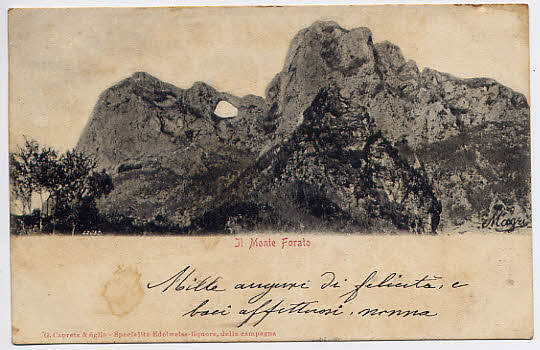 Magri
Il Monte Forato
Mille auguri di felicità, e
baci affettuosi, nonna
G. Capretz & figlio - Specialità Edelweiss-liquore, della campagna